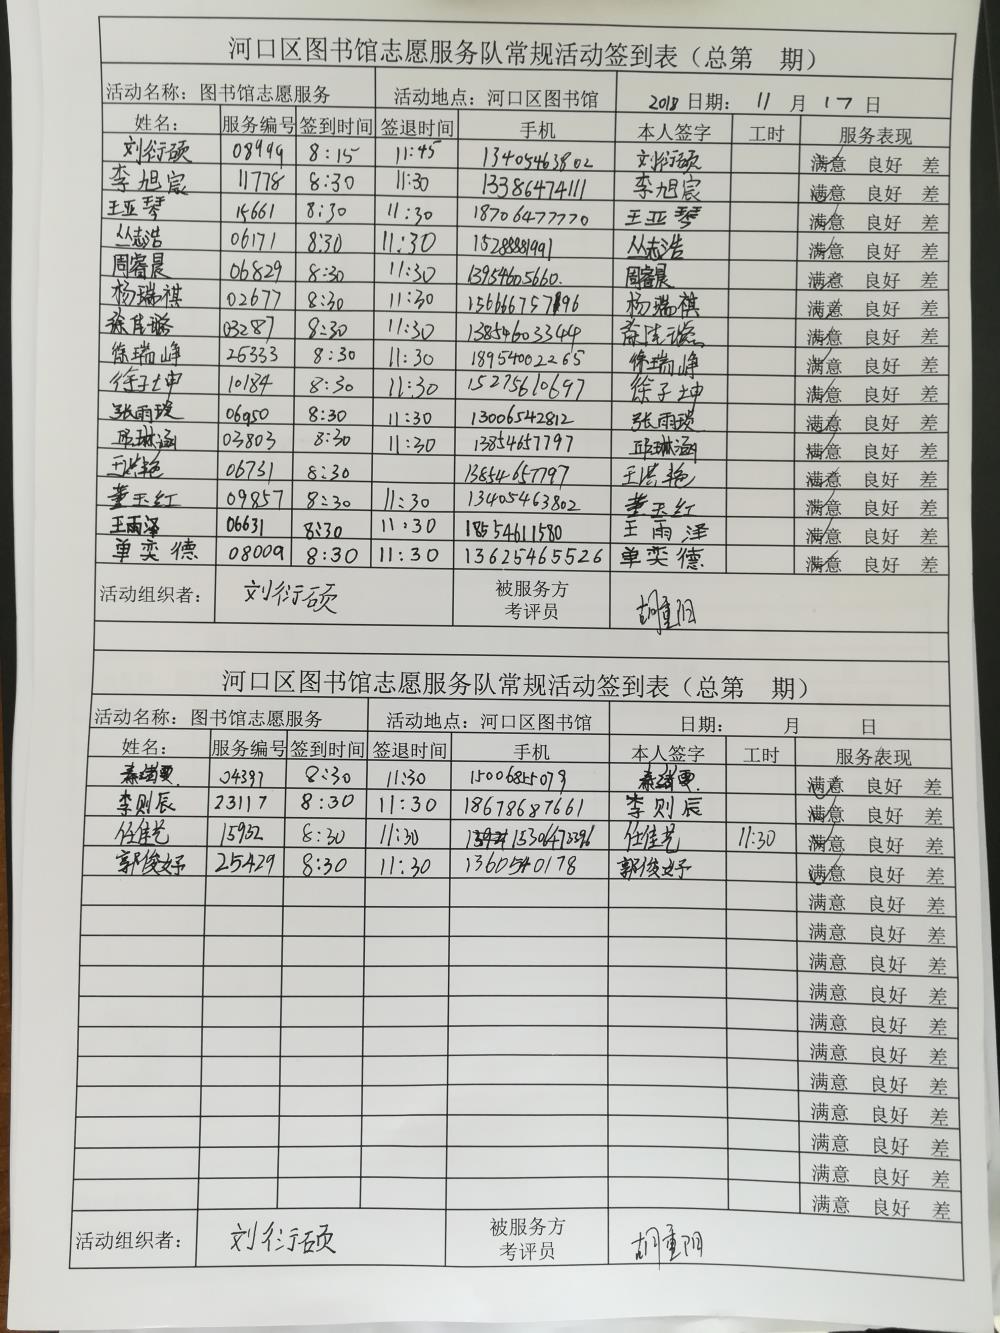 河口区图书馆志愿服务队常规活动签到表（总第 期）
活动名称：图书馆志愿服务 活动地点：河口区图书馆 2018 日期： 11 月 17 日
姓名： 服务编号 签到时间 签退时间 手机 本人签字 工时 服务表现
刘衍硕 08999 8:15 11:45 13405463802 刘衍硕 满意 良好 差
李旭宸 11778 8:30 11:30 13386474111 李旭宸 满意 良好 差
王亚琴 15661 8:30 11:30 18706477770 王亚琴 满意 良好 差
丛志浩 06171 8:30 11:30 15288881991 丛志浩 满意 良好 差
周睿晨 06829 8:30 11:30 13954605660 周睿晨 满意 良好 差
杨瑞祺 02677 8:30 11:30 15666757896 杨瑞祺 满意 良好 差
03287 8:30 11:30 13854603344 满意 良好 差
徐瑞峥 25333 8:30 11:30 18954002265 徐瑞峥 满意 良好 差
徐子坤 10184 8:30 11:30 15275610697 徐子坤 满意 良好 差
张雨琰 06950 8:30 11:30 13006542812 张雨琰 满意 良好 差
邱琳涵 03803 8:30 11:30 13854657797 邱琳涵 满意 良好 差
王洪艳 06731 8:30 13854657797 王洪艳 满意 良好 差
董玉红 09857 8:30 11:30 13405463802 董玉红 满意 良好 差
王雨泽 06631 8:30 11:30 18554611580 王雨泽 满意 良好 差
单奕德 08009 8:30 11:30 13625465526 单奕德 满意 良好 差
活动组织者： 刘衍硕 被服务方 考评员 胡重阳
河口区图书馆志愿服务队常规活动签到表（总第 期）
活动名称：图书馆志愿服务 活动地点：河口区图书馆 日期： 月 日
姓名： 服务编号 签到时间 签退时间 手机 本人签字 工时 服务表现
04397 8:30 11:30 15006855079 满意 良好 差
李则辰 23117 8:30 11:30 18678687661 李则辰 满意 良好 差
任佳艺 15932 8:30 11:30 15306473396 任佳艺 11:30 满意 良好 差
郭俊妤 25429 8:30 11:30 1360540178 郭俊妤 满意 良好 差
满意 良好 差
满意 良好 差
满意 良好 差
满意 良好 差
满意 良好 差
满意 良好 差
满意 良好 差
满意 良好 差
满意 良好 差
满意 良好 差
满意 良好 差
活动组织者： 刘衍硕 被服务方 考评员 胡重阳